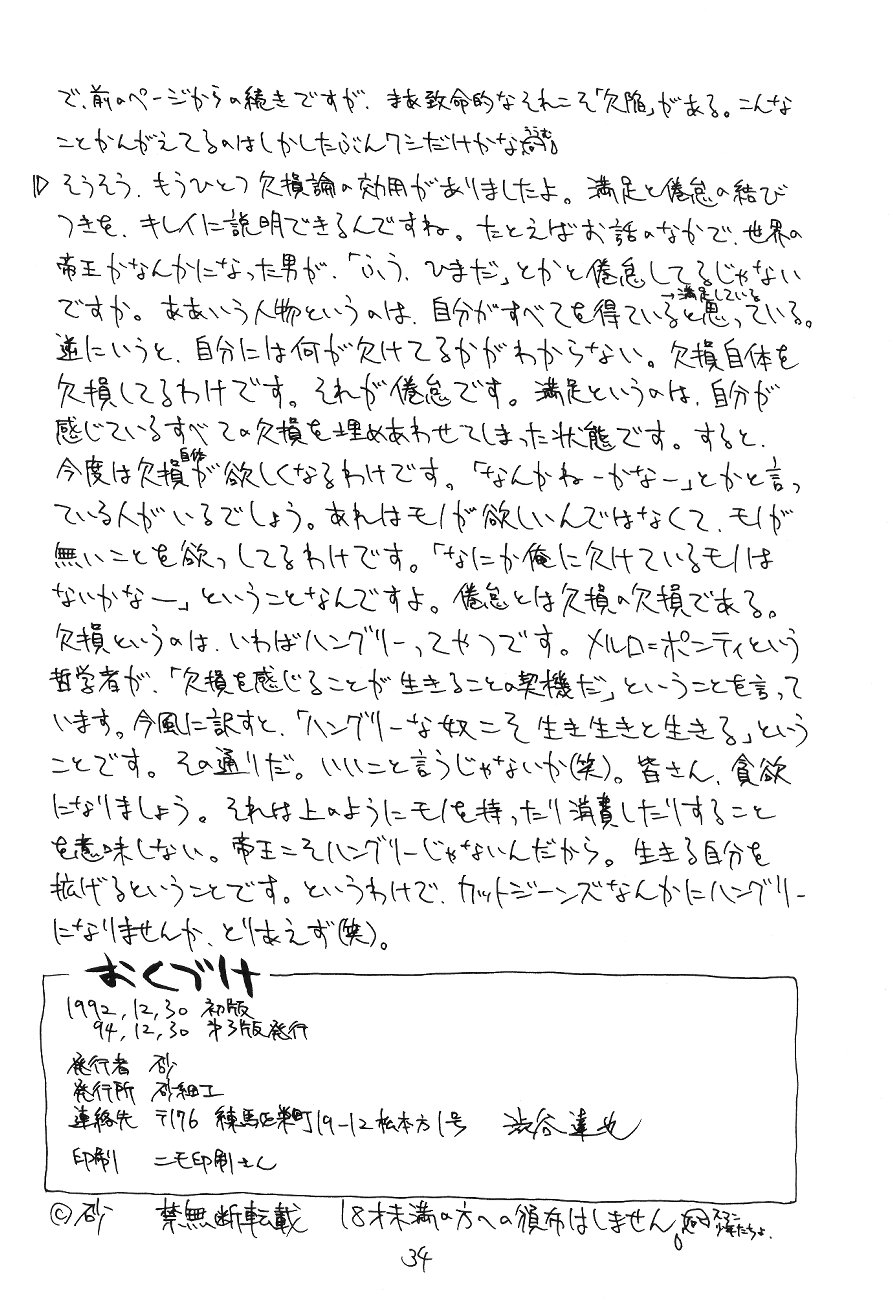 で、前のページからの続きですが、まあ致命的なそれこそ「欠陥」がある。こんな
ことかんがえてるのはしかしたぶんワシだけかな
そうそう、もうひとつ欠損論の効用がありましたよ。満足と倦怠の結び
つきを、キレイに説明できるんですね。たとえばお話のなかで、世界の
帝王かなんかになった男が、「ふう、ひまだ」とかと倦怠してるじゃない
→満足している
ですか。ああいう人物というのは、自分がすべてを得ていると思っている。
逆にいうと、自分には何が欠けてるかがわからない。欠損自体を
欠損してるわけです。それが倦怠です。満足というのは、自分が
感じているすべての欠損を埋めあわせてしまった状態です。すると、
自体
今度は欠損が欲しくなるわけです。「なんかねーかなー」とかと言っ
ている人がいるでしょう。あれはモノが欲しいんではなくて、モノが
無いことを欲っしてるわけです。「なにか俺に欠けているモノは
ないかなー」ということなんですよ。倦怠とは欠損の欠損である。
欠損というのは、いわばハングリーってやつです。メルロ=ポンティという
哲学者が、「欠損を感じることが生きることの契機だ」ということを言って
います。今風に訳すと、「ハングリーな奴こそ生き生きと生きる」という
ことです。その通りだ。いいこと言うじゃないか(笑)。皆さん、貪欲
になりましょう。それは上のようにモノを持ったり消費したりすること
を意味しない。帝王こそハングリーじゃないんだから。生きる自分を
拡げるということです。というわけで、カットジーンズなんかにハングリー
になりませんか、とりあえず(笑)。
おくづけ
1992,12,30 初版
94,12,30 第3版発行
発行者 砂
発行所 砂細工
連絡先 〒176 練馬区栄町19-12松本方1号 渋谷達也
印刷 ニモ印刷さん
©砂 禁無断転載 18才未満の方への頒布はしません
34